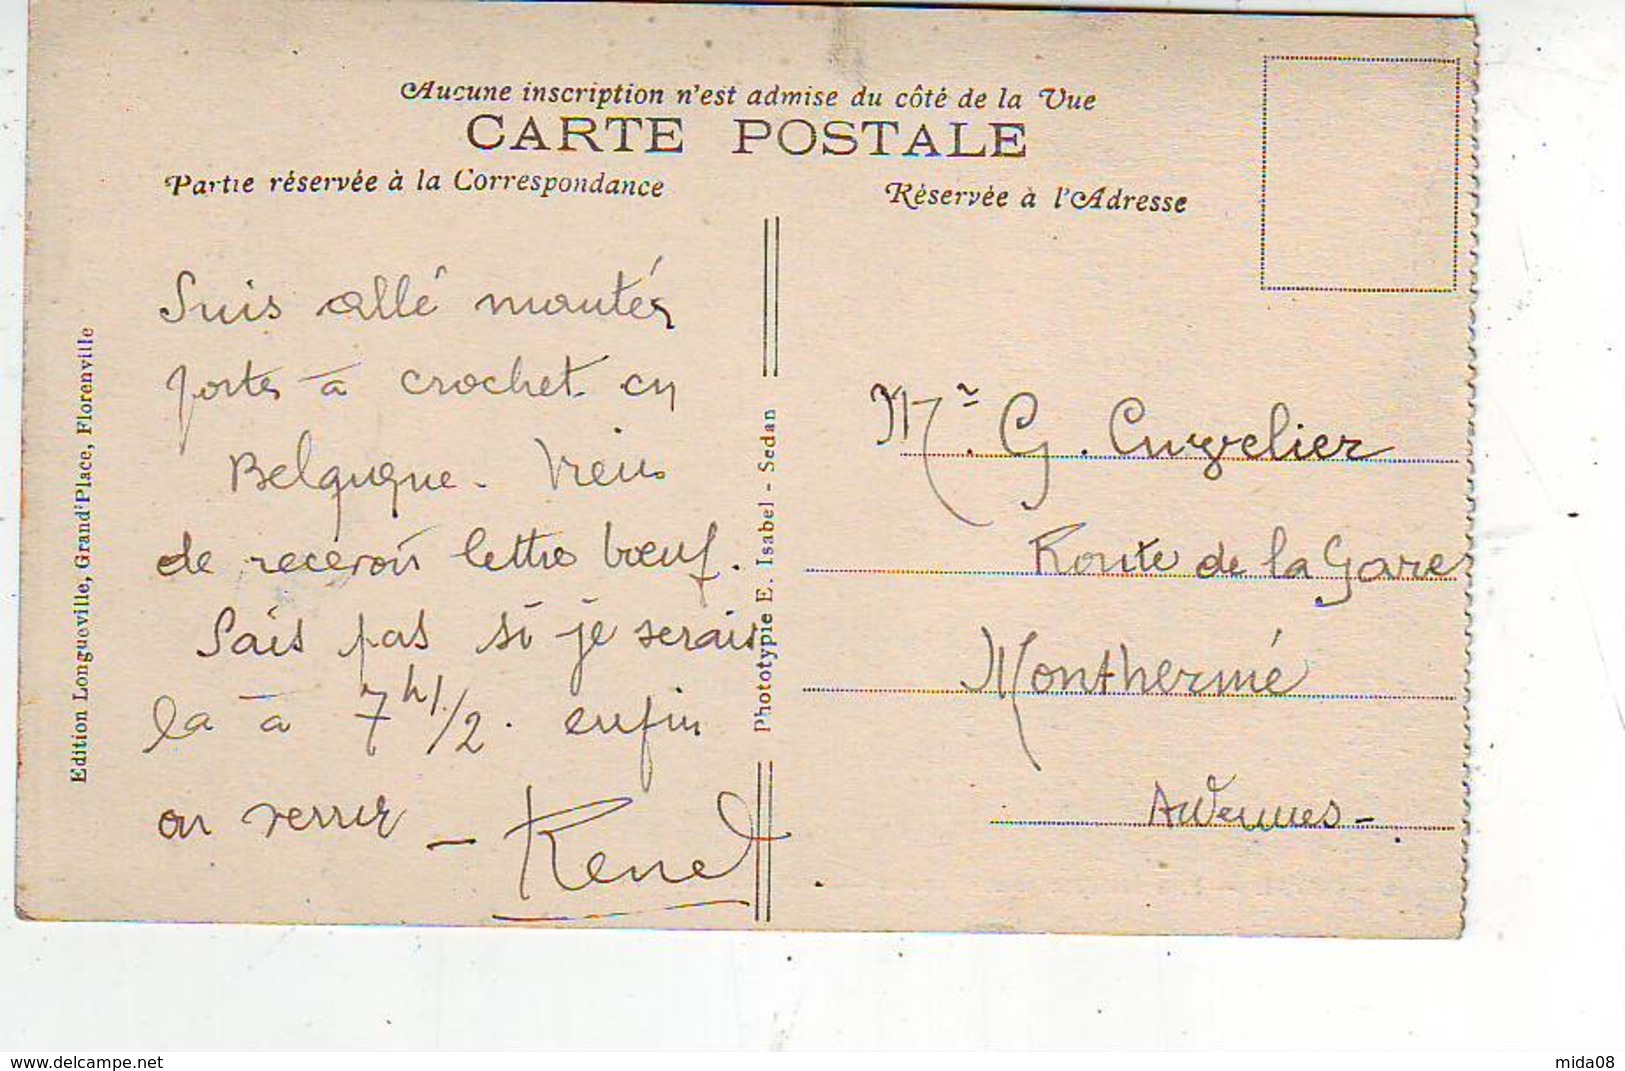 Aucune inscription n'est admise du côté de la Vue
CARTE POSTALE
Partie réservée à la Correspondance
Réservée à l'Adresse
Suis allé
portes à crochet en
Belgique. Viens
de recevoir lettre bœuf.
Sais pas si je serais
là à 7h 1/2. enfin
on verra -
René
Mr. G. Cuvelier
Route de la Gare
Monthermé
Ardennes -
Edition Longueville, Grand'Place, Florenville
Phototypie E. Isabel - Sedan
www.delcampe.net
mida08